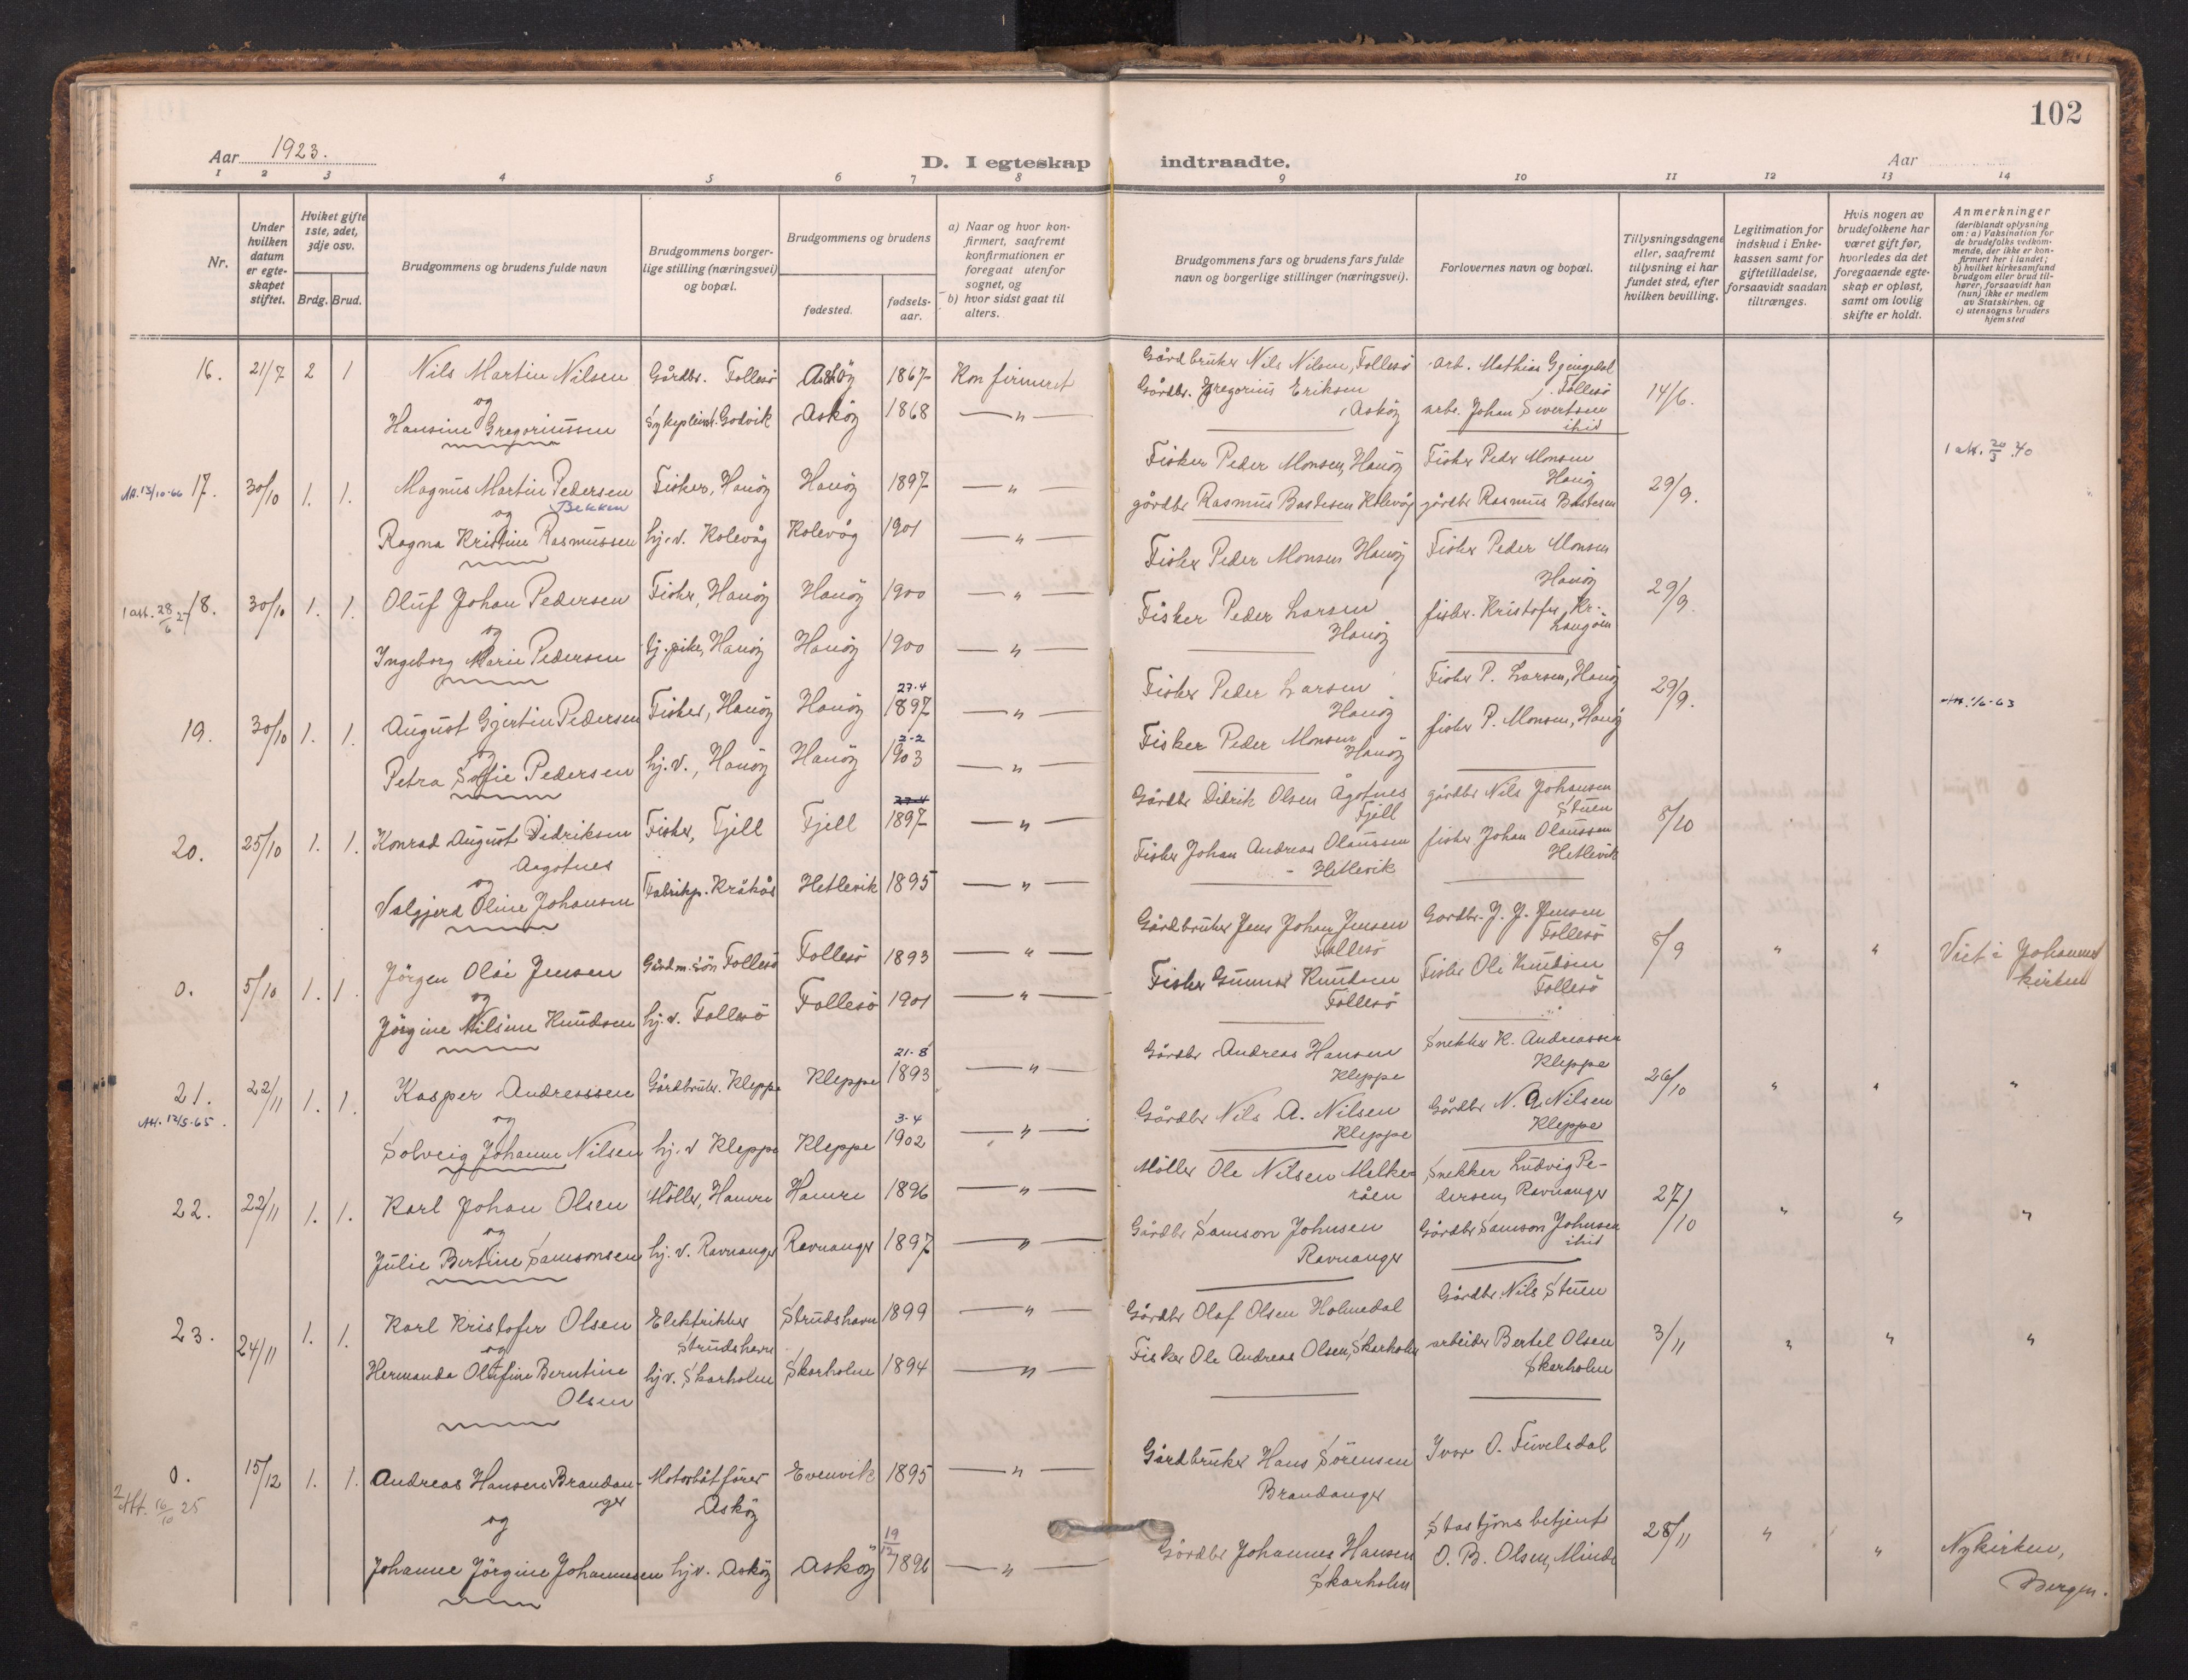 102
Aar 1923.
D. I egteskap indtraadte.
Aar
1 2 3 4 5 6 7 8 9 10 11 12 13 14
Nr.
Under hvilken datum er egteskapet stiftet.
Hvilket gifte 1ste, 2det, 3dje osv.
Brdg. Brud.
Brudgommens og brudens fulde navn
Brudgommens borgerlige stilling (næringsvei) og bopæl.
Brudgommens og brudens
fødested.
fødselsaar.
a) Naar og hvor konfirmert, saafremt konfirmationen er foregaat utenfor sognet, og
b) hvor sidst gaat til alters.
Brudgommens fars og brudens fars fulde navn og borgerlige stillinger (næringsvei).
Forlovernes navn og bopæl.
Tillysningsdagene eller, saafremt tillysning ei har fundet sted, efter hvilken bevilling.
Legitimation for indskud i Enkekassen samt for giftetilladelse, forsaavidt saadan tiltrænges.
Hvis nogen av brudefolkene har været gift før, hvorledes da det foregaaende egteskap er opløst, samt om lovlig skifte er holdt.
Anmerkninger (deriblandt oplysning om: a) Vaksination for de brudefolks vedkommende, der ikke er konfirmert her i landet; b) hvilket kirkesamfund brudgom eller brud tilhører, forsaavidt han (hun) ikke er medlem av Statskirken, og c) utensogns bruders hjemsted
16. 21/7 2 1 Nils Martin Nilsen Gårdbr. Follesö Asköy 1867 Konfirmeret Gårdbruker Nils Nilsen, Follesö arb. Mathias Gjengedal Follesö 14/6.
og
Hansine Gregoriussen Godvik Asköy 1868 — " — Gårdbr. Gregorius Eriksen, Asköy arb. Johan Sivertsen ibid
1 att. 20/3 40
Att. 13/10-66 17. 30/10 1. 1. Magnus Martin Pedersen Bekken Fisker, Hanöy Hanöy 1897 — " — Fisker Peder Monsen, Hanöy Fisker Peder Monsen Hanöy 29/9.
og
Ragna Kristine Rasmussen hj.v. Kolevåg Kolevåg 1901 — " — gårdbr Rasmus Bastesen Kolevåg gårdbr Rasmus Bastesen
1 att. 28/6 27 18. 30/10 1. 1. Oluf Johan Pedersen Fisker, Hanöy Hanöy 1900 — " — Fisker Peder Monsen Hanöy Fisker Peder Monsen Hanöy 29/9.
og
Ingeborg Marie Pedersen tj.pike, Hanöy Hanöy 1900 — " — Fisker Peder Larsen Hanöy fisker. Kristofer Kr. Langöen
19. 30/10 1. 1. August Gjertin Pedersen Fisker, Hanöy Hanöy 27-4 1897 — " — Fisker Peder Larsen Hanöy Fisker P. Larsen, Hanöy 29/9. Att. 1/6-63
og
Petra Sofie Pedersen hj.v., Hanöy Hanöy 2-2 1903 — " — Fisker Peder Monsen Hanöy fisker P. Monsen, Hanöy
20. 25/10 1. 1. Konrad August Didriksen Aagotnes Fisker, Fjell Fjell 27-4 1897 — " — Gårdbr Didrik Olsen Ågotnes Fjell gårdbr Nils Johansen Stuen 8/10
og
Valgjerd Oline Johansen Fabrikp. Kråkås Hetlevik 1895 — " — Fisker Johan Andreas Olaussen Hetlevik fisker Johan Olaussen Hetlevik
0. 5/10 1. 1. Jörgen Olai Jensen Gårdm. sön Follesö Follesö 1893 — " — Gårdbruker Jens Johan Jensen Follesö Gårdbr. J. J. Jensen Follesö 8/9 " " Viet i Johanneskirken
og
Jörgine Nilsine Knudsen hj.v. Follesö Follesö 1901 — " — Fisker Gunnar Knudsen Follesö Fisker Ole Knudsen Follesö
21. 22/11 1. 1. Kasper Andreassen Gårdbruker. Kleppe Kleppe 21-8 1893 — " — Gårdbr Andreas Hansen Kleppe Snekker K. Andreassen Kleppe 26/10 " " "
Att. 12/5-65. og
Solveig Johanne Nilsen hj.v Kleppe Kleppe 3-4 1902 — " — Gårdbr Nils A. Nilsen Kleppe Gårdbr N. A. Nilsen Kleppe
22. 22/11 1. 1. Karl Johan Olsen Möller, Hamre Hamre 1896 — " — Möller Ole Nilsen Melkeråen Snekker Ludvig Pedersen, Ravnanger 27/10 " " "
og
Julie Bertine Samsonsen hj.v. Ravnanger Ravnanger 1897 — " — Gårdbr Samson Johnsen Ravnanger Gårdbr Samson Johnsen ibid
23. 24/11 1. 1. Karl Kristofer Olsen Elektriker Strudshavn Strudshavn 1899 — " — Gårdbr Olaf Olsen Holmedal Gårdbr. Nils Stuen 3/11 " " "
og
Hermanda Olufine Berntine Olsen hj.v. Skarholm Skarholm 1894 — " — Fisker Ole Andreas Olsen, Skarholm arbeider Bertel Olsen Skarholm
0. 15/12 1. 1. Andreas Hansen Brandanger Motorbåtförer Asköy Evenvik 1895 — " — Gårdbruker Hans Sörensen Brandanger Ivar O. Fuvelsdal
2 Att. 16/10 25
og
Johanne Jörgine Johannesen hj.v. Asköy Asköy 19/12 1896 — " — Gårdbr Johannes Hansen Skarholm Stasjonsbetjent O. B. Olsen, Minde 28/11 " " Nykirken, Bergen.